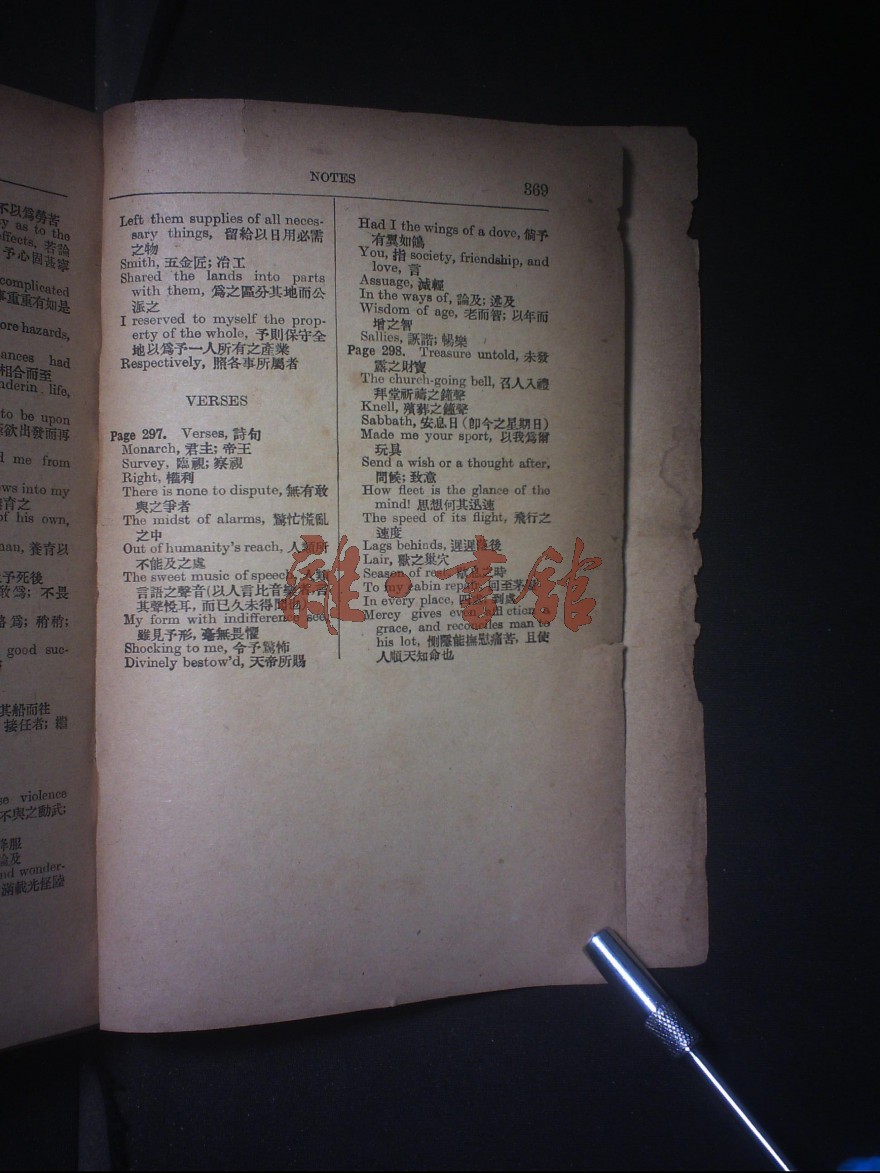 不以爲勞苦
y as to the
effects, 若論
予心固甚寧
complicated
事重重有如是
ore hazards,
ances had
相合而至
nderin life,
to be upon
欲出發而再
d me from
ws into my
育之
of his own,
man, 養育以
予死後
敢爲; 不畏
爲; 稍稍;
good suc-
其船而往
接任者; 繼
se violence
不與之動武;
降服
論及
nd wonder-
滿載光怪陸
NOTES
369
Left them supplies of all neces-
sary things, 留給以日用必需
之物
Smith, 五金匠; 冶工
Shared the lands into parts
with them, 爲之區分其地而公
派之
I reserved to myself the prop-
erty of the whole, 予則保守全
地以爲予一人所有之產業
Respectively, 照各事所屬者
VERSES
Page 297. Verses, 詩句
Monarch, 君主; 帝王
Survey, 臨視; 察視
Right, 權利
There is none to dispute, 無有敢
與之爭者
The midst of alarms, 驚忙慌亂
之中
Out of humanity's reach, 人類所
不能及之處
The sweet music of speech, 人類
言語之聲音(以人言比音樂者,言
其聲悅耳, 而已久未得聞也)
My form with indifference see,
雖見予形, 毫無畏懼
Shocking to me, 令予驚怖
Divinely bestow'd, 天帝所賜
Had I the wings of a dove, 倘予
有翼如鴿
You, 指 society, friendship, and
love, 言
Assuage, 減輕
In the ways of, 論及; 述及
Wisdom of age, 老而智; 以年而
增之智
Sallies, 詼諧; 暢樂
Page 298. Treasure untold, 未發
露之財寶
The church-going bell, 召人入禮
拜堂祈禱之鐘聲
Knell, 殯葬之鐘聲
Sabbath, 安息日(卽今之星期日)
Made me your sport, 以我爲爾
玩具
Send a wish or a thought after,
問候; 致意
How fleet is the glance of the
mind! 思想何其迅速
The speed of its flight, 飛行之
速度
Lags behinds, 遲遲落後
Lair, 獸之巢穴
Season of rest, 歇息之時
To my cabin repair, 回至茅屋
In every place, 到處
Mercy gives even affliction a
grace, and reconciles man to
his lot, 惻隱能撫慰痛苦, 且使
人順天知命也
雜書館